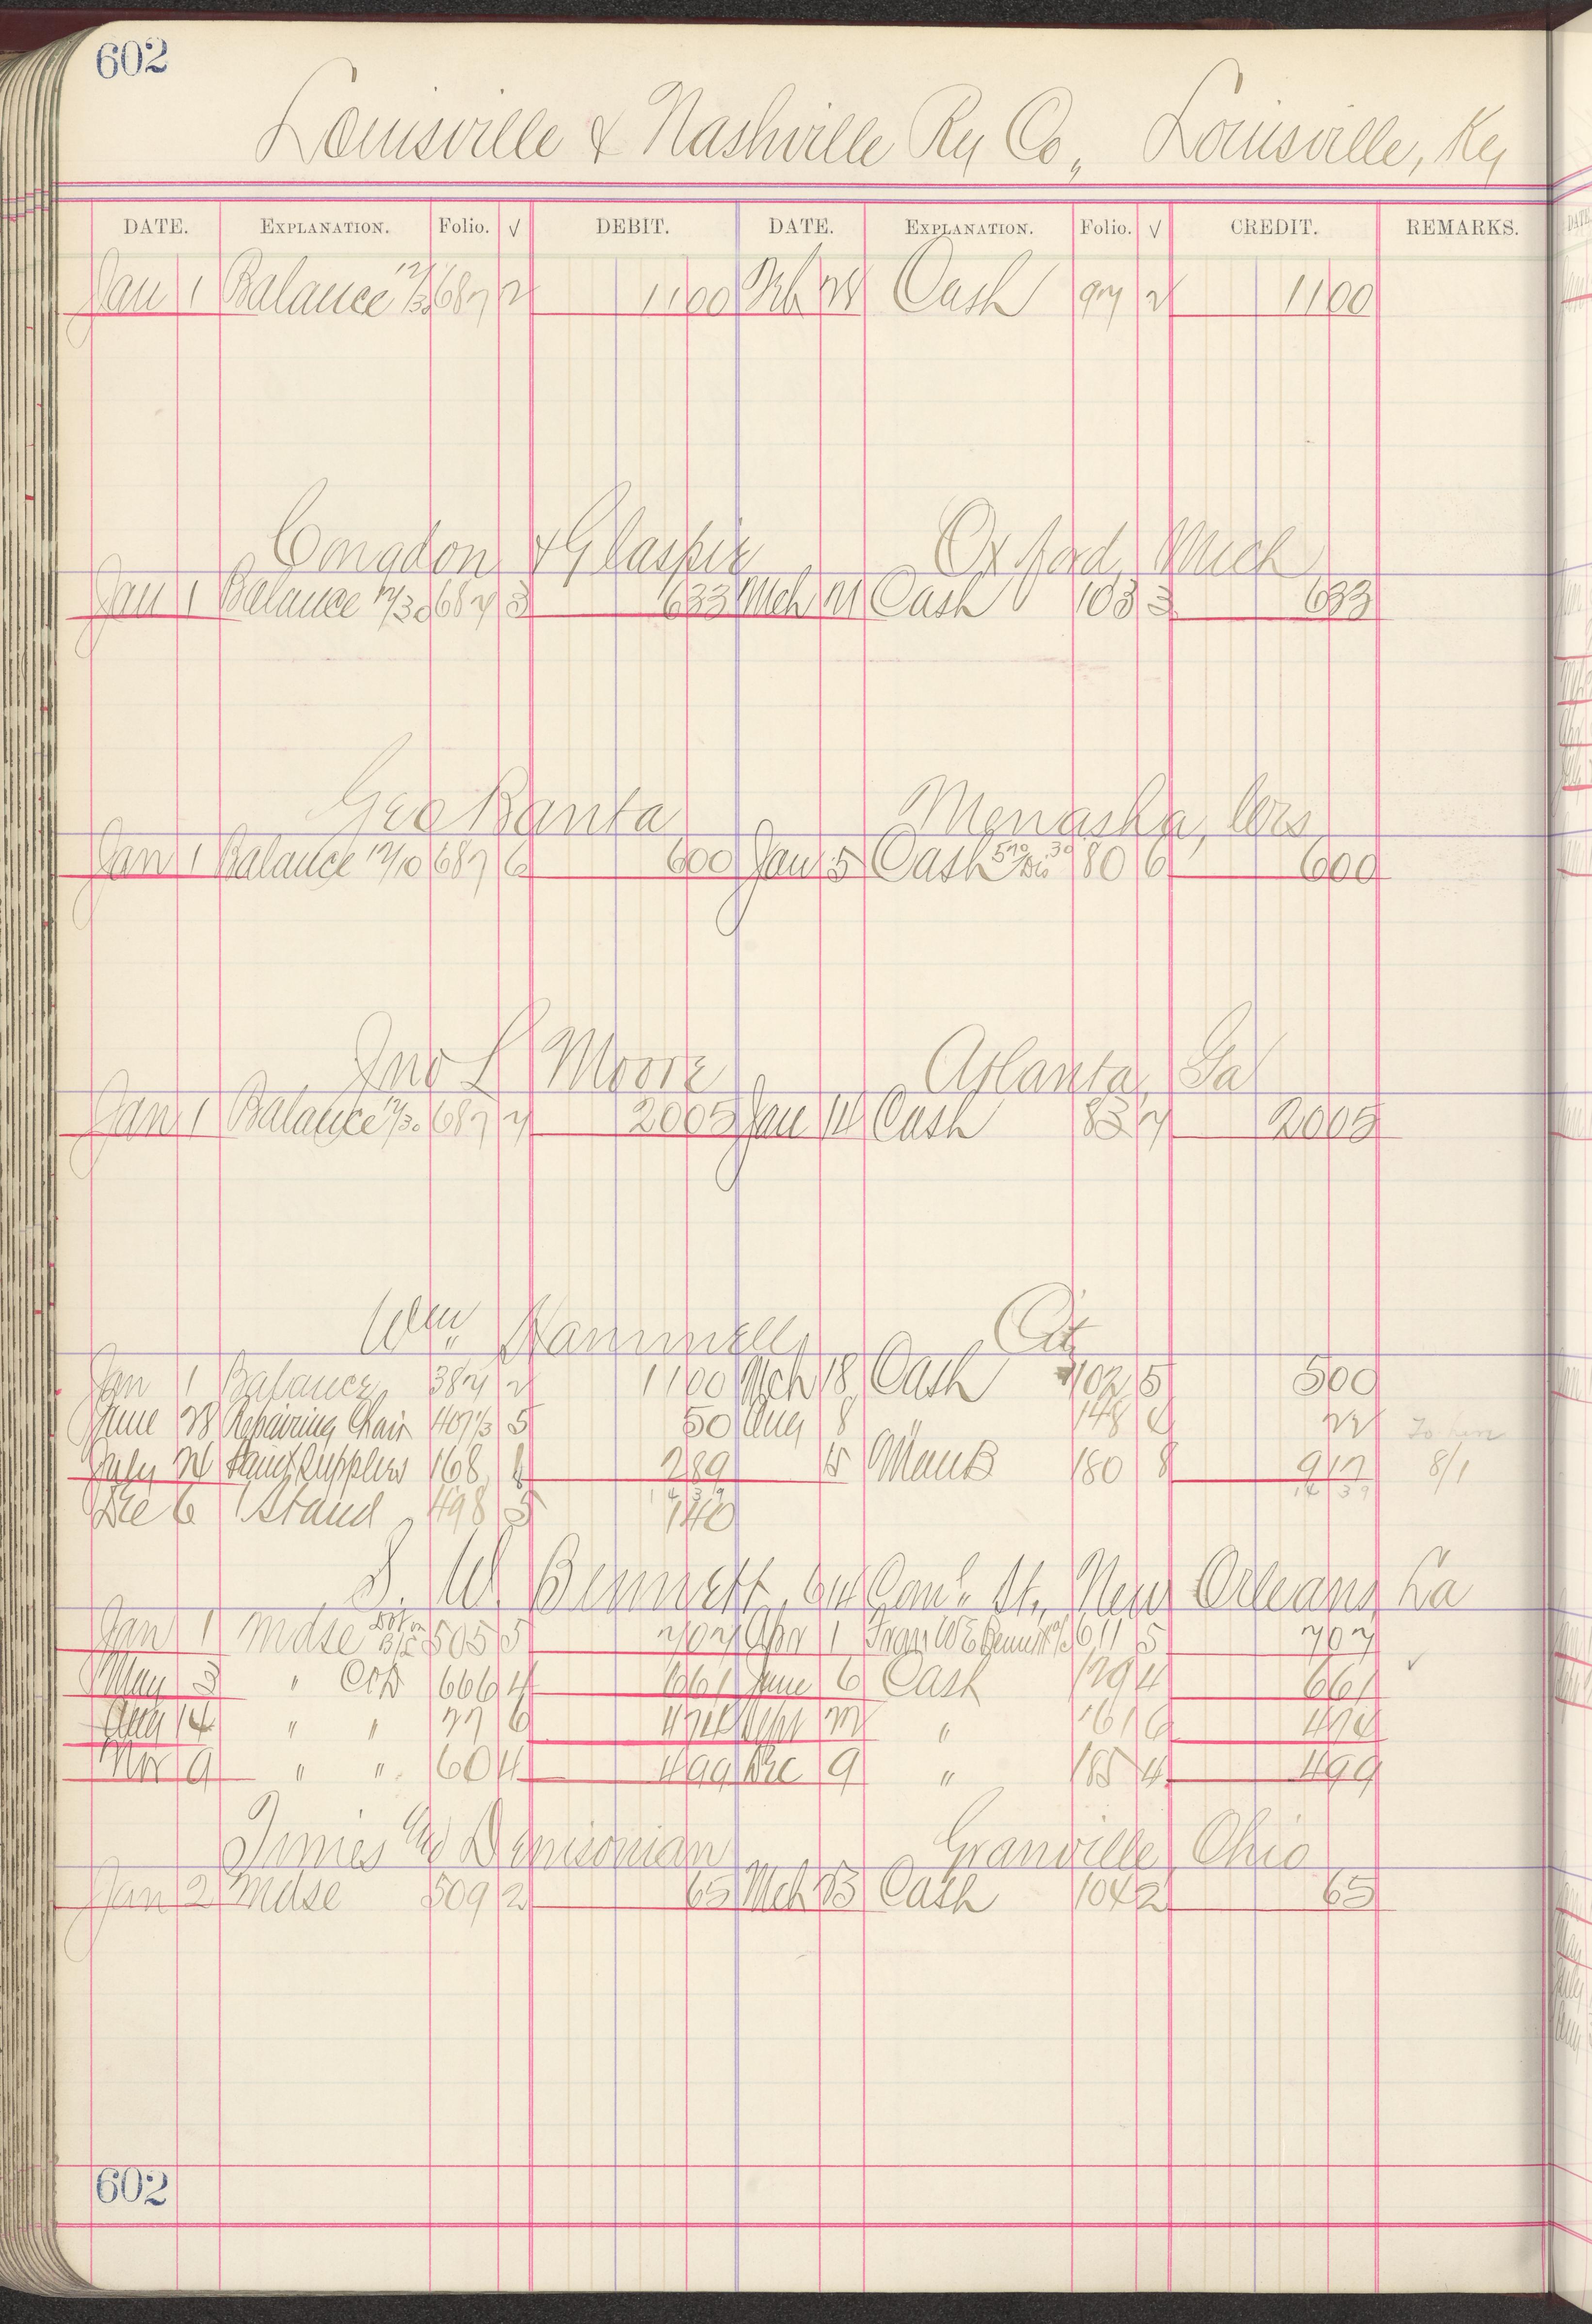 602
Louisville & Nashville Ry Co., Louisville, Ky
DATE. EXPLANATION. Folio. √ DEBIT. DATE. EXPLANATION. Folio. √ CREDIT. REMARKS.
Jan 1 Balance 687 2 1100 Feb 28 Cash 97 2 1100
Congdon & Glaspie Oxford, Mich
Jan 1 Balance 12/30 687 3 633 Mch 21 Cash 103 3 633
Geo Banta Menasha, Wis
Jan 1 Balance 12/10 687 6 600 Jan 5 Cash 80 6 600
Jno L Moore Atlanta, Ga
Jan 1 Balance 687 7 2005 Jan 14 Cash 83 7 2005
Wm Hammell, Cit
Jan 1 Balance 387 2 1100 Mch 18 Cash 102 5 500
June 28 Repairing Chair 407 1/3 5 50 Aug 8 148 22
July 24 Supplies 168 289 15 Maus 180 8 917 8/1
Dec 6 1 Stand 498 5 140 1439
S. W. Bennett, Conl St., New Orleans, La
Jan 1 Mdse 505 5 707 Apr 1 611 5 707
May 3 " 666 4 661 June 6 Cash 129 4 661 ✓
Aug 14 " " 77 6 474 Sept 22 " 161 6 474
Nov 9 " " 160 4 499 Dec 9 " 185 4 499
Times Denisonian Granville, Ohio
Jan 2 Mdse 509 2 65 Mch 23 Cash 104 2 65
602